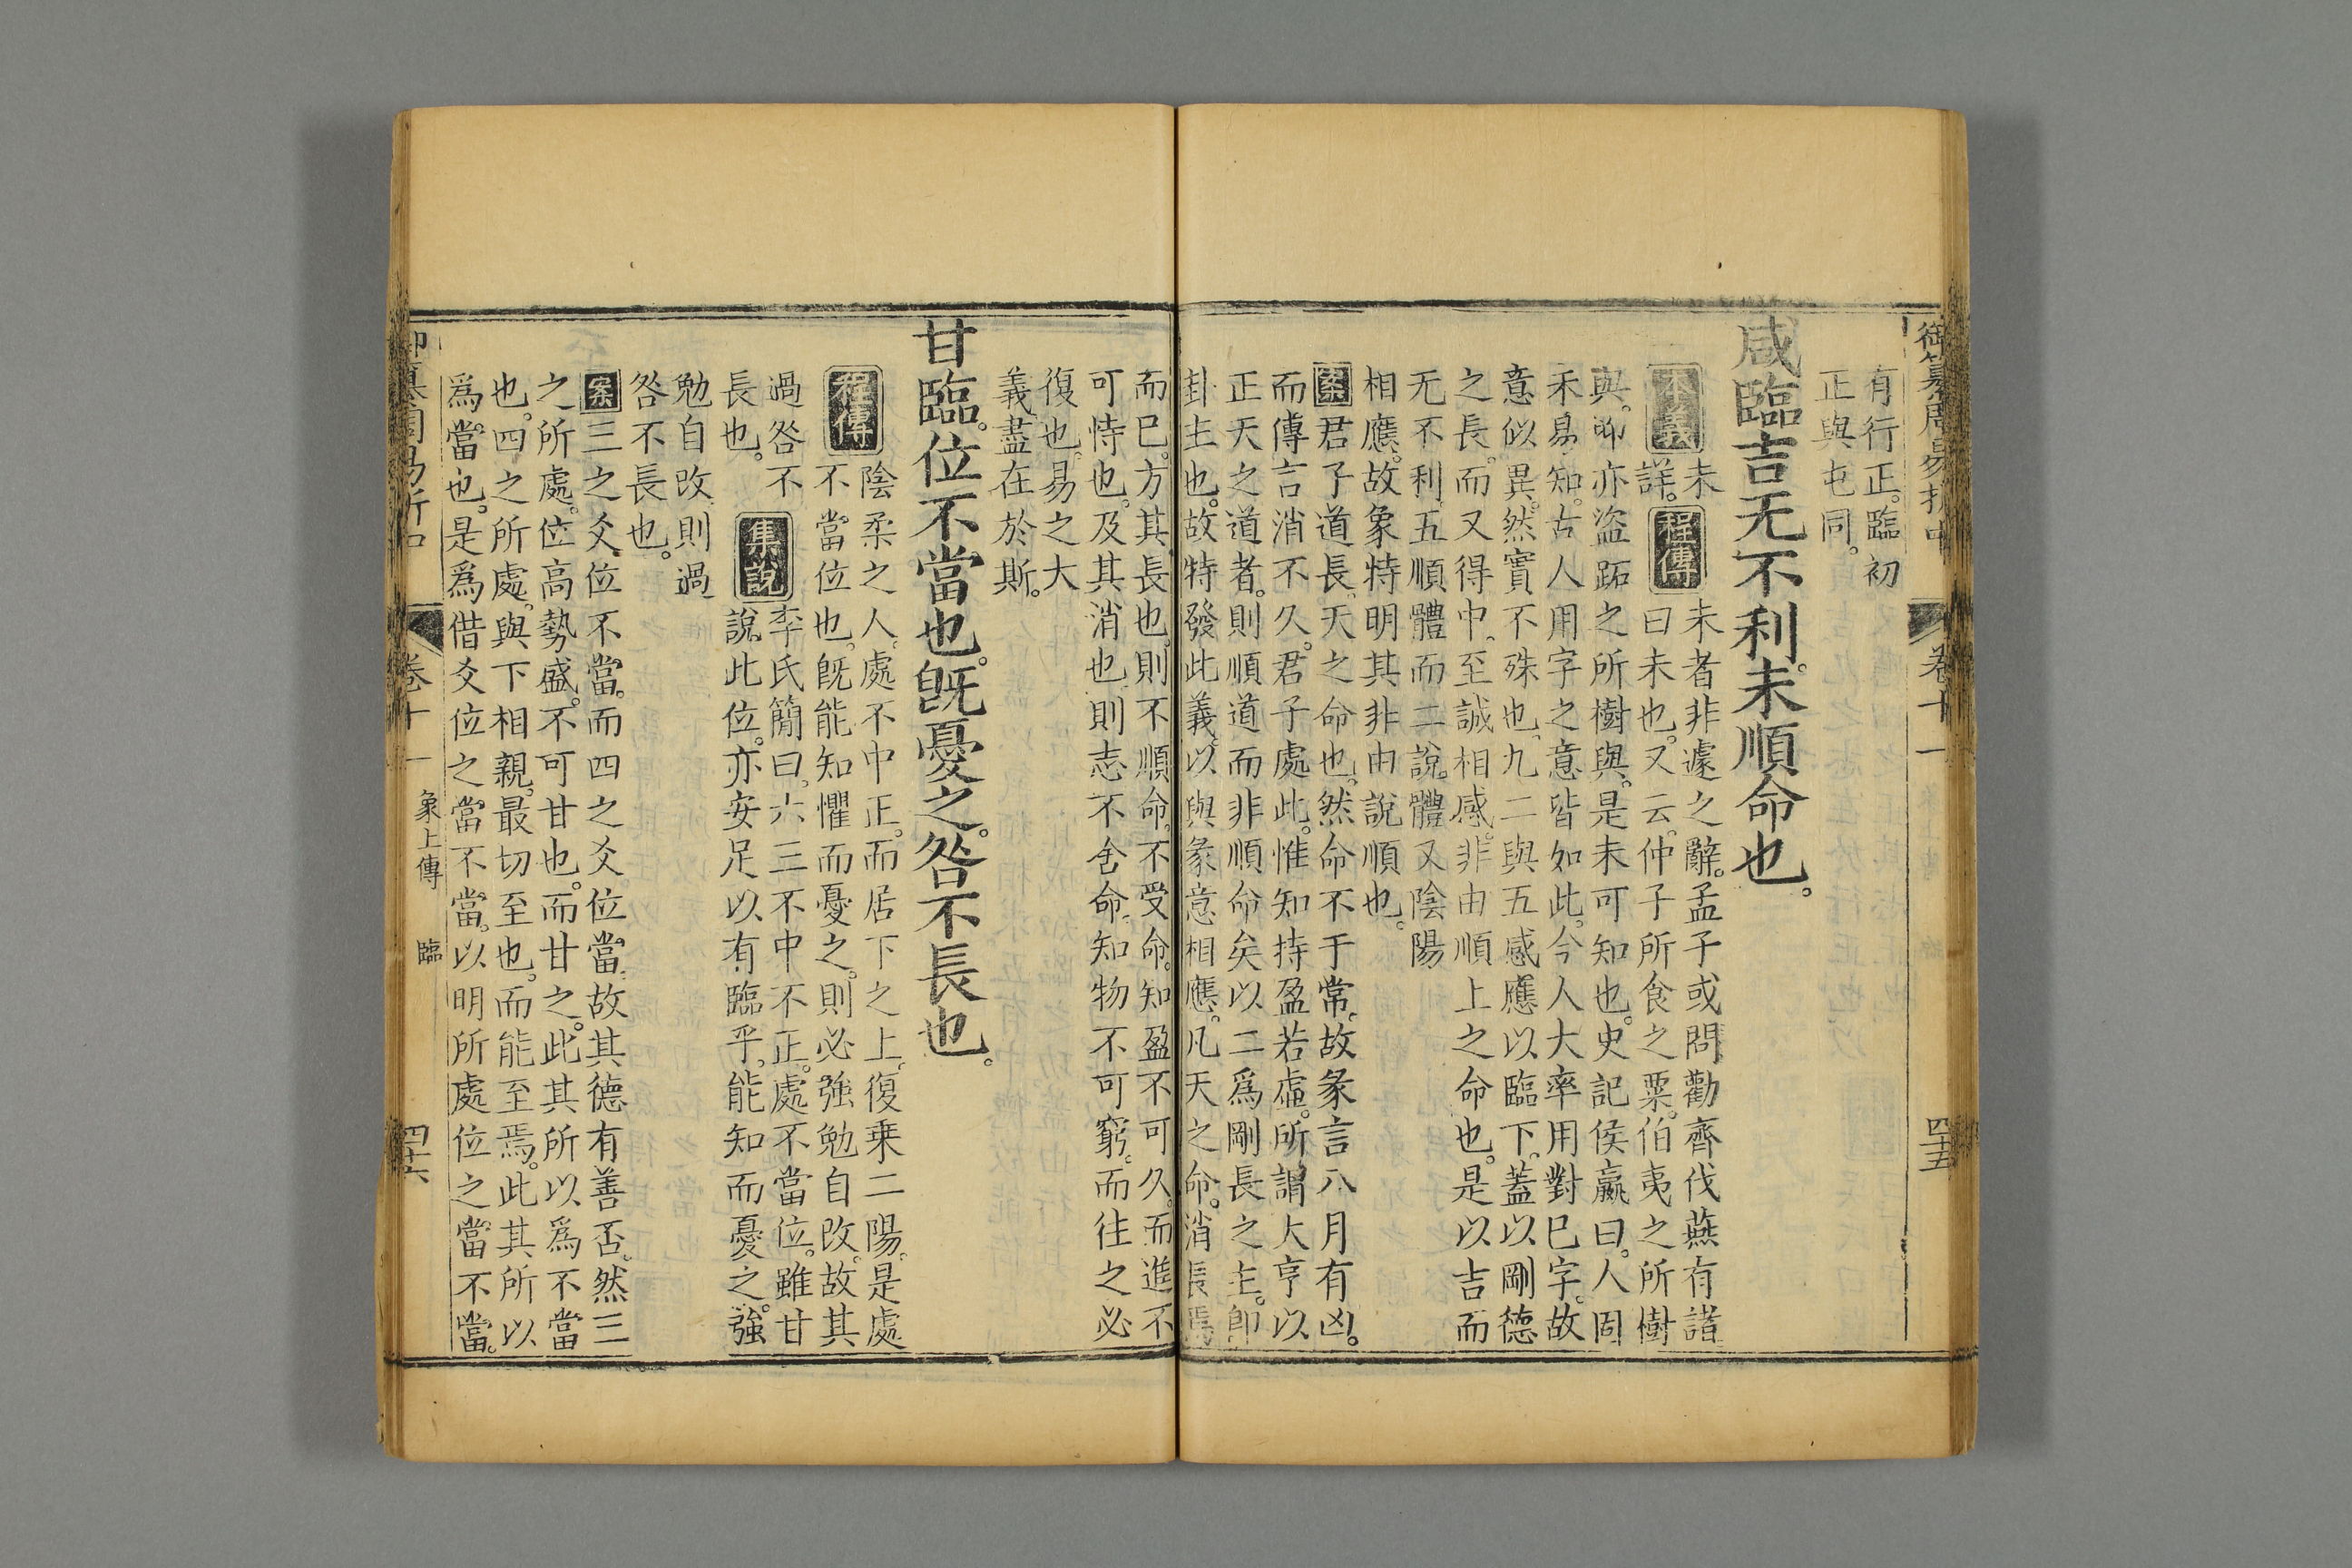 御纂周易折中 卷十一 四十五
有行正。臨初
正與屯同。
咸臨吉无不利。未順命也。
本義 未詳。
程傳 未者非遽之辭。孟子或問勸齊伐燕有諸
曰未也。又云。仲子所食之粟。伯夷之所樹
與。抑亦盜跖之所樹與。是未可知也。史記侯嬴曰。人固
未易知。古人用字之意皆如此。今人大率用對已字。故
意似異。然實不殊也。九二與五感應以臨下。蓋以剛德
之長。而又得中。至誠相感。非由順上之命也。是以吉而
无不利。五順體而二說。體又陰陽
相應。故象特明其非由說順也。
案君子道長。天之命也。然命不于常。故彖言八月有凶。
而傳言消不久。君子處此。惟知持盈若虛。所謂大亨以
正天之道者。則順道而非順命矣以二爲剛長之主。即
卦主也。故特發此義。以與彖意相應。凡天之命。消長焉
而已。方其長也。則不順命。不受命。知盈不可久。而進不
可恃也。及其消也則志不舍命。知物不可窮。而往之必
復也。易之大
義。盡在於斯。
甘臨。位不當也。旣憂之。咎不長也。
程傳 陰柔之人。處不中正。而居下之上。復乗二陽。是處
不當位也。旣能知懼而憂之。則必強勉自改。故其
過咎不長也。
集說 李氏簡曰。六三不中不正。處不當位。雖甘
說。此位。亦安足以有臨乎。能知而憂之。強
勉自改則過
咎不長也。
案三之爻位不當。而四之爻位當。故其德有善否。然三
之所處。位高勢盛。不可甘也。而甘之。此其所以爲不當
也。四之所處。與下相親。最切至也。而能至焉。此其所以
爲當也。是爲借爻位之當不當。以明所處位之當不當。
御纂周易折中 卷十一 象上傳 臨 四十六